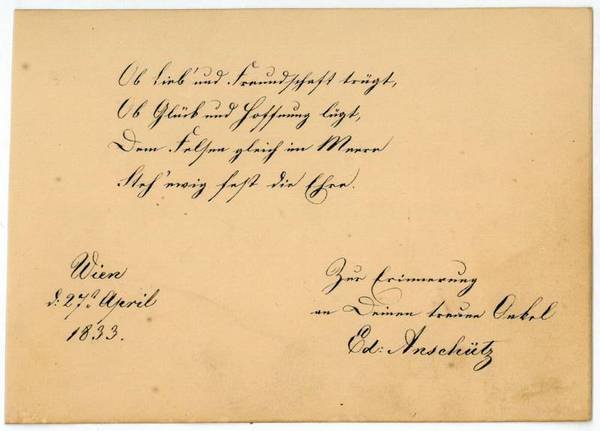 Ob Lieb' und Freundschaft trügt,
Ob Glück und Hoffnung lügt,
Dem Felsen gleich im Meere
Steh' ewig fest die Ehre.
Wien
d: 27t April
1833.
Zur Erinnerung
an Deinen treuen Onkel
Ed: Anschütz